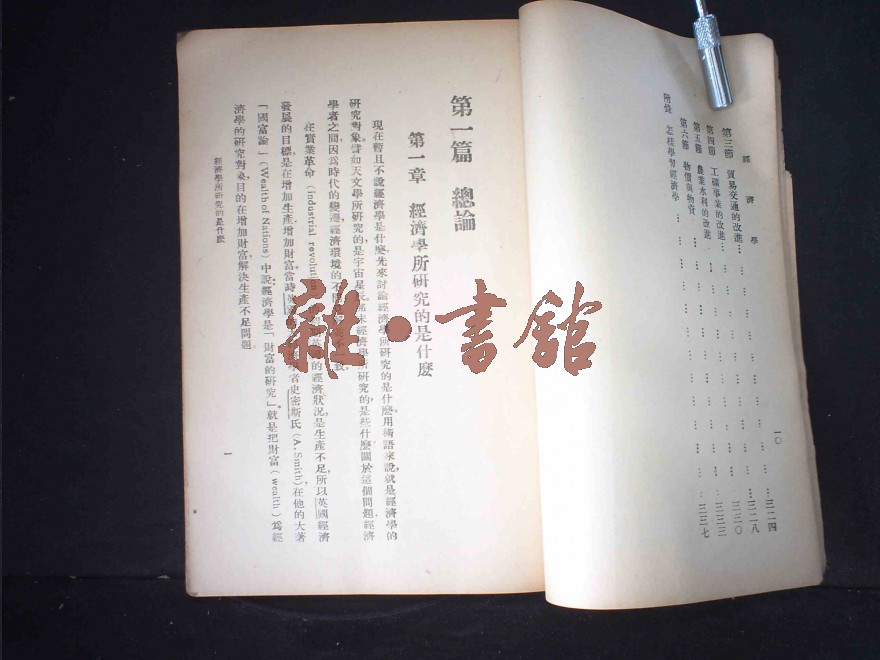 經濟學
一〇
第三節 貿易交通的改進
第四節 工礦事業的改進
第五節 農業水利的改進
第六節 物價與物資
附錄 怎樣學習經濟學
第一篇 總論
第一章 經濟學所研究的是什麼
現在暫且不說經濟學是什麼,先來討論經濟學所研究的是什麼,用術語來說,就是經濟學的
研究對象。譬如天文學所研究的,是宇宙星辰,原來經濟學所研究的是些什麼?關於這個問題,經濟
學者之間,因為時代的變遷,經濟環境的不同
在實業革命(industrial revolution 的經濟狀況,是生產不足,所以英國經濟
發展的目標,是在增加生產,增加財富。當時 學者史密斯氏(A. Smith),在他的大著
「國富論」(Wealth of Nations)中說:經濟學是「財富的研究」,就是把財富(wealth)為經
濟學的研究對象,目的在增加財富,解決生產不足問題。
經濟學所研究的是什麼
一
雜·書館